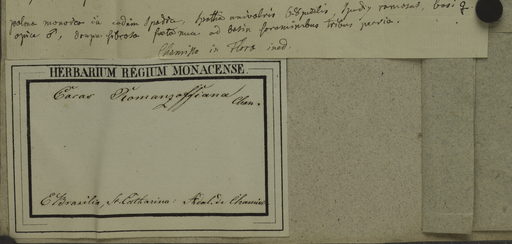 palma monoica in eodem spadice, spatha univalvis sulcatilis, spadix ramosus, basi ♀
apice ♂, drupa fibrosa foeta nuce ad basin foraminibus tribus pervia.
Chamisso in Flora ined.
HERBARIUM REGIUM MONACENSE.
Cocos Romanzoffiana Cham.
E Brasilia, St. Catharina: Acad. de Chamisso